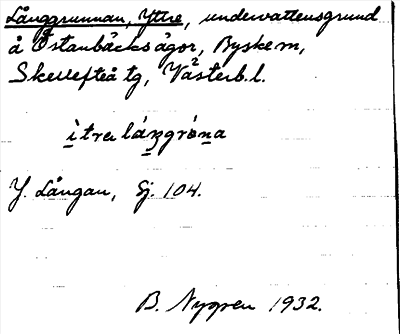 Långgrunnan, Yttre, undervattensgrund
å Östanbäcksägor, Byske sn,
Skellefteå tg, Västerb. l.
Y. Långan, Sj. 104.
B. Nygren 1932.